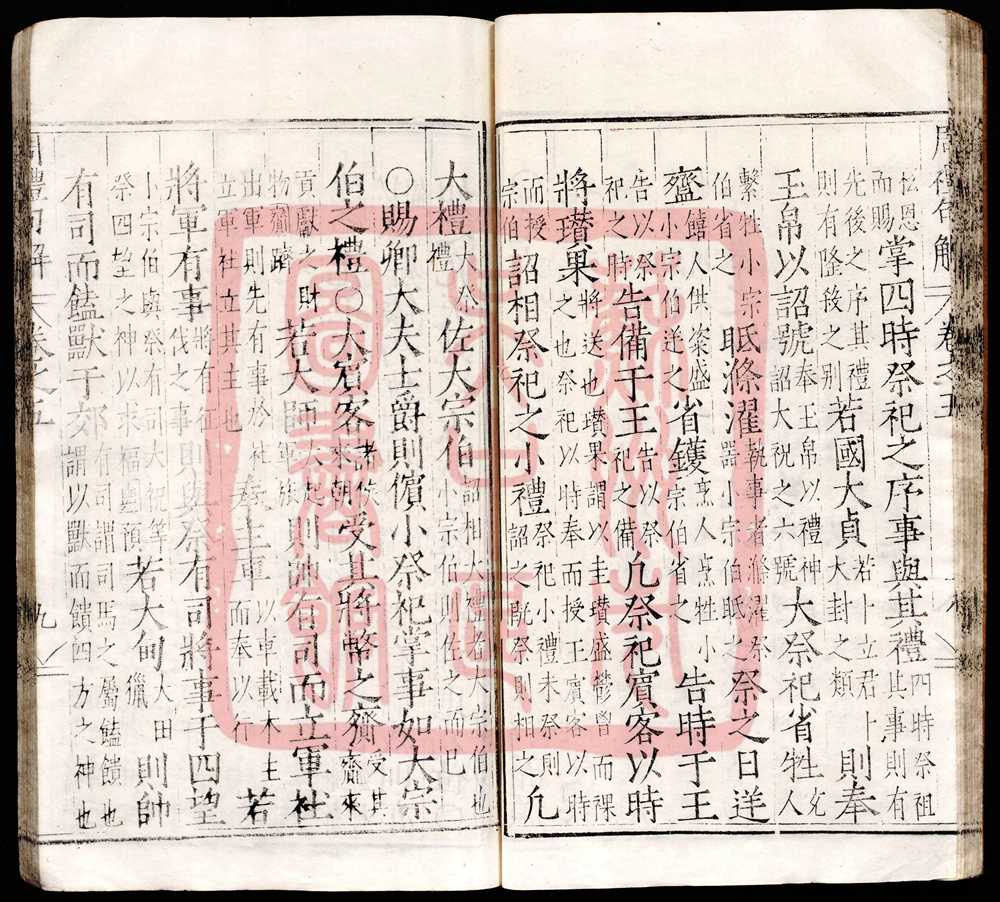 周禮句解 卷之五
忪恩而賜掌四時祭祀之序事與其禮四時祭祖其事則有
先後之序其禮則有隆殺之别若國大貞若卜立君卜大封之類則奉
玉帛以詔號奉玉帛以禮神詔大祝之六號大祭祀省牲充人
繫牲小宗伯省之眡滌濯執事者滌濯祭器小宗伯眡之祭之日逆
齍饎人供粢盛小宗伯逆之省鑊烹人烹牲小宗伯省之告時于王
告以祭祀之時告備于王告以祭祀之備凡祭祀賓客以時
將瓚果將送也瓚果謂以圭瓚盛鬱鬯而祼之也祭祀以時奉而授王賓客以時
而授宗伯詔相祭祀之小禮祭祀小禮未祭則詔之旣祭則相之凡
大禮大祭禮佐大宗伯詔相大禮者大宗伯也小宗伯則佐之而已
○賜卿大夫士爵則儐小祭祀掌事如大宗
伯之禮○大賓客諸侯來朝受其將幣之齎受其齎來
貢獻之財物若大師大起軍旅則帥有司而立軍社
出軍則先有事於社立軍社立其主也奉主車以車載木主而奉以行若
將軍有事將有征伐之事則與祭有司將事于四望
小宗伯與祭有司大祝等祭四望之神以求福若大甸大田獵則帥
有司而饁獸于郊有司謂司馬之屬饁饋也謂以獸而饋四方之神也
周禮句解 卷之五 九